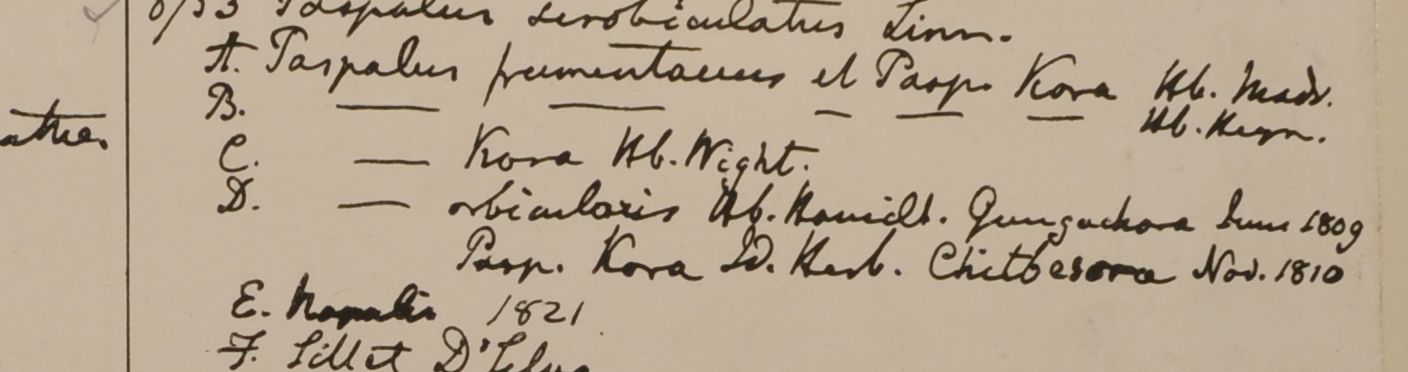 Paspalus scrobiculatus Linn.
A. Paspalus frumentaceus et Pasp. Kora Hb. Madr.
B. — — — — — Hb. Heyn.
C. — Kora Hb. Wight.
D. — orbicularis Hb. Hamilt. Gungachora Junii 1809
Pasp. Kora Id. Herb. Chitbesora Nov. 1810
E. Napalia 1821
F. Sillet